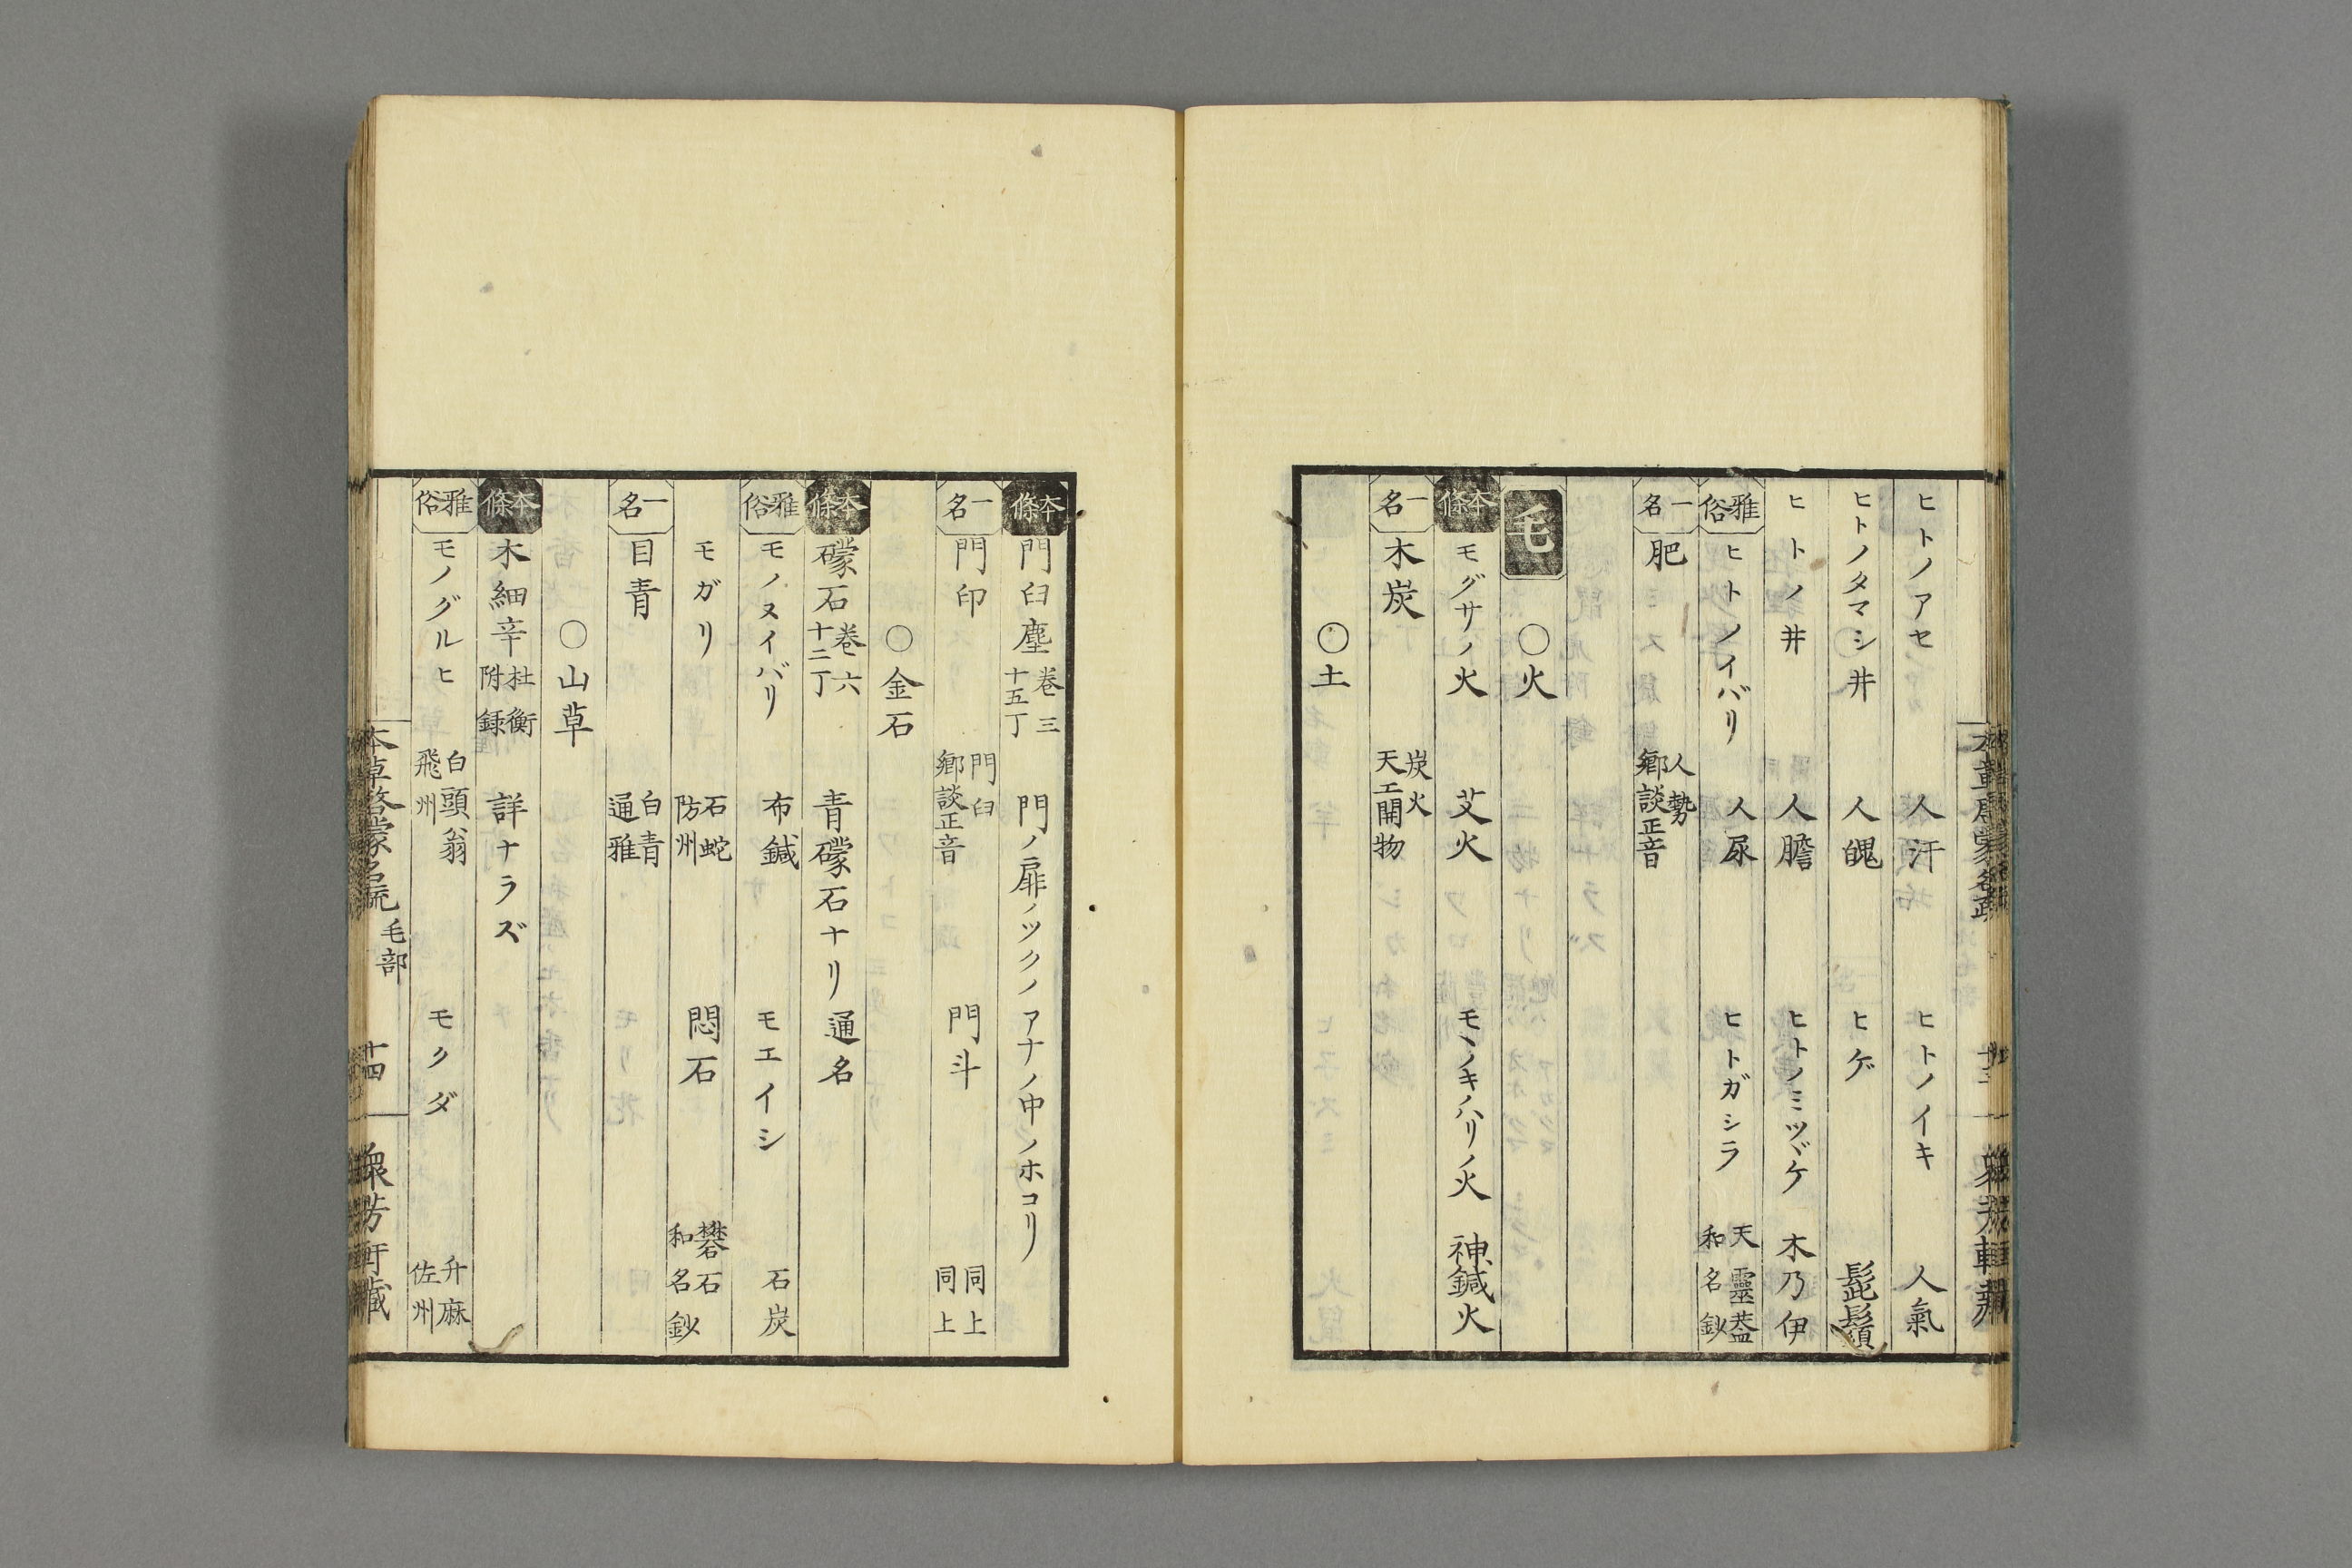 ヒトノアセ 人汗 ヒトノイキ 人氣
ヒトノタマシ井 人魄 ヒゲ 髭鬚
ヒトノ井 人膽 ヒトノミツヾケ 木乃伊
雅俗 ヒトノイバリ 人尿 ヒトガシラ 天靈葢 和名鈔
一名 肥 人勢 鄉談正音
毛 〇火
本條 モグサノ火 艾火 モヽノキノハリノ火 神鍼火
一名 木炭 炭火 天工開物
〇土
本條 門臼塵 卷三 十五丁 門ノ扉ノツクノアナノ中ノホコリ
一名 門印 門臼 鄉談正音 門斗 同上 同上
〇金石
本條 礞石 卷六 十二丁 青礞石ナリ 通名
雅俗 モノヌイバリ 布鍼 モエイシ 石炭
モガリ 石蛇 防州 悶石 礬石 和名鈔
一名 目青 白青 通雅
〇山草
本條 木細辛 杜衡附録 詳ナラズ
雅俗 モノグルヒ 白頭翁 飛州 モクダ 升麻 佐州
本草啓蒙名疏 毛部 十四 衆芳軒藏